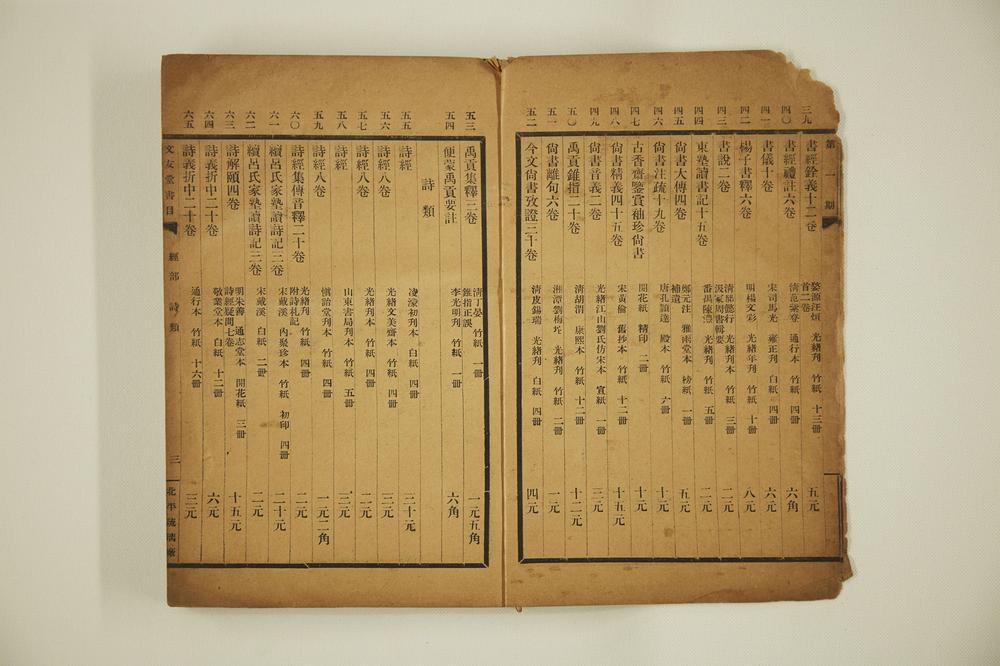 第一期
三九 書經銓義十二卷 首二卷 婺源汪烜 光緒刊 竹紙 十三冊 五元
四〇 書經禮註六卷 清范紫登 通行本 竹紙 四冊 六角
四一 書儀十卷 宋司馬光 雍正刊 白紙 四冊 六元
四二 楊子書釋六卷 明楊文彩 光緒年刊 竹紙 十冊 八元
四三 書說二卷 清郝懿行 光緒刊本 竹紙 三冊 汲冢周書輯要 二元
四四 東塾讀書記十五卷 番禺陳澧 光緒刊 竹紙 五冊 二元
四五 尙書大傳四卷 補遺 鄭元注 雅雨堂本 榜紙 一冊 五元
四六 尙書注疏十九卷 唐孔頴達 殿本 竹紙 六冊 十元
四七 古香齋鑒賞袖珍尙書 開花紙 精印 二冊 十元
四八 尙書精義四十五卷 宋黃倫 舊抄本 竹紙 十二冊 十五元
四九 尙書音義二卷 光緒江山劉氏仿宋本 宣紙 一冊 三元
五〇 禹貢錐指二十卷 清胡渭 康熙本 竹紙 十二冊 十二元
五一 尙書離句六卷 湘潭劉梅垞 光緒刊 竹紙 二冊 一元
五二 今文尙書攷證三十卷 清皮錫瑞 光緒刊 白紙 四冊 四元
五三 禹貢集釋三卷 清丁晏 竹紙 一冊 錐指正誤 一元五角
五四 便蒙禹貢要註 李光明刊 竹紙 一冊 六角
詩類
五五 詩經 凌濛初刊本 白紙 四冊 三十元
五六 詩經八卷 光緒文美齋本 竹紙 四冊 二元
五七 詩經八卷 光緒刊本 竹紙 四冊 二元
五八 詩經 山東書局刊本 竹紙 五冊 三元
五九 詩經八卷 愼詒堂刊本 竹紙 四冊 一元二角
六〇 詩經集傳音釋二十卷 附詩札記 光緒刊 竹紙 四冊 二元
六一 續呂氏家塾讀詩記三卷 宋戴溪 內聚珍本 竹紙 初印 四冊 二十元
六二 續呂氏家塾讀詩記三卷 宋戴溪 白紙 二冊 二元
六三 詩解頤四卷 明朱善 通志堂本 開花紙 三冊 詩經疑問七卷 十五元
六四 詩義折中二十卷 敬業堂本 白紙 十二冊 六元
六五 詩義折中二十卷 通行本 竹紙 十六冊 三元
文友堂書目 經部 詩類 三 北平琉璃廠